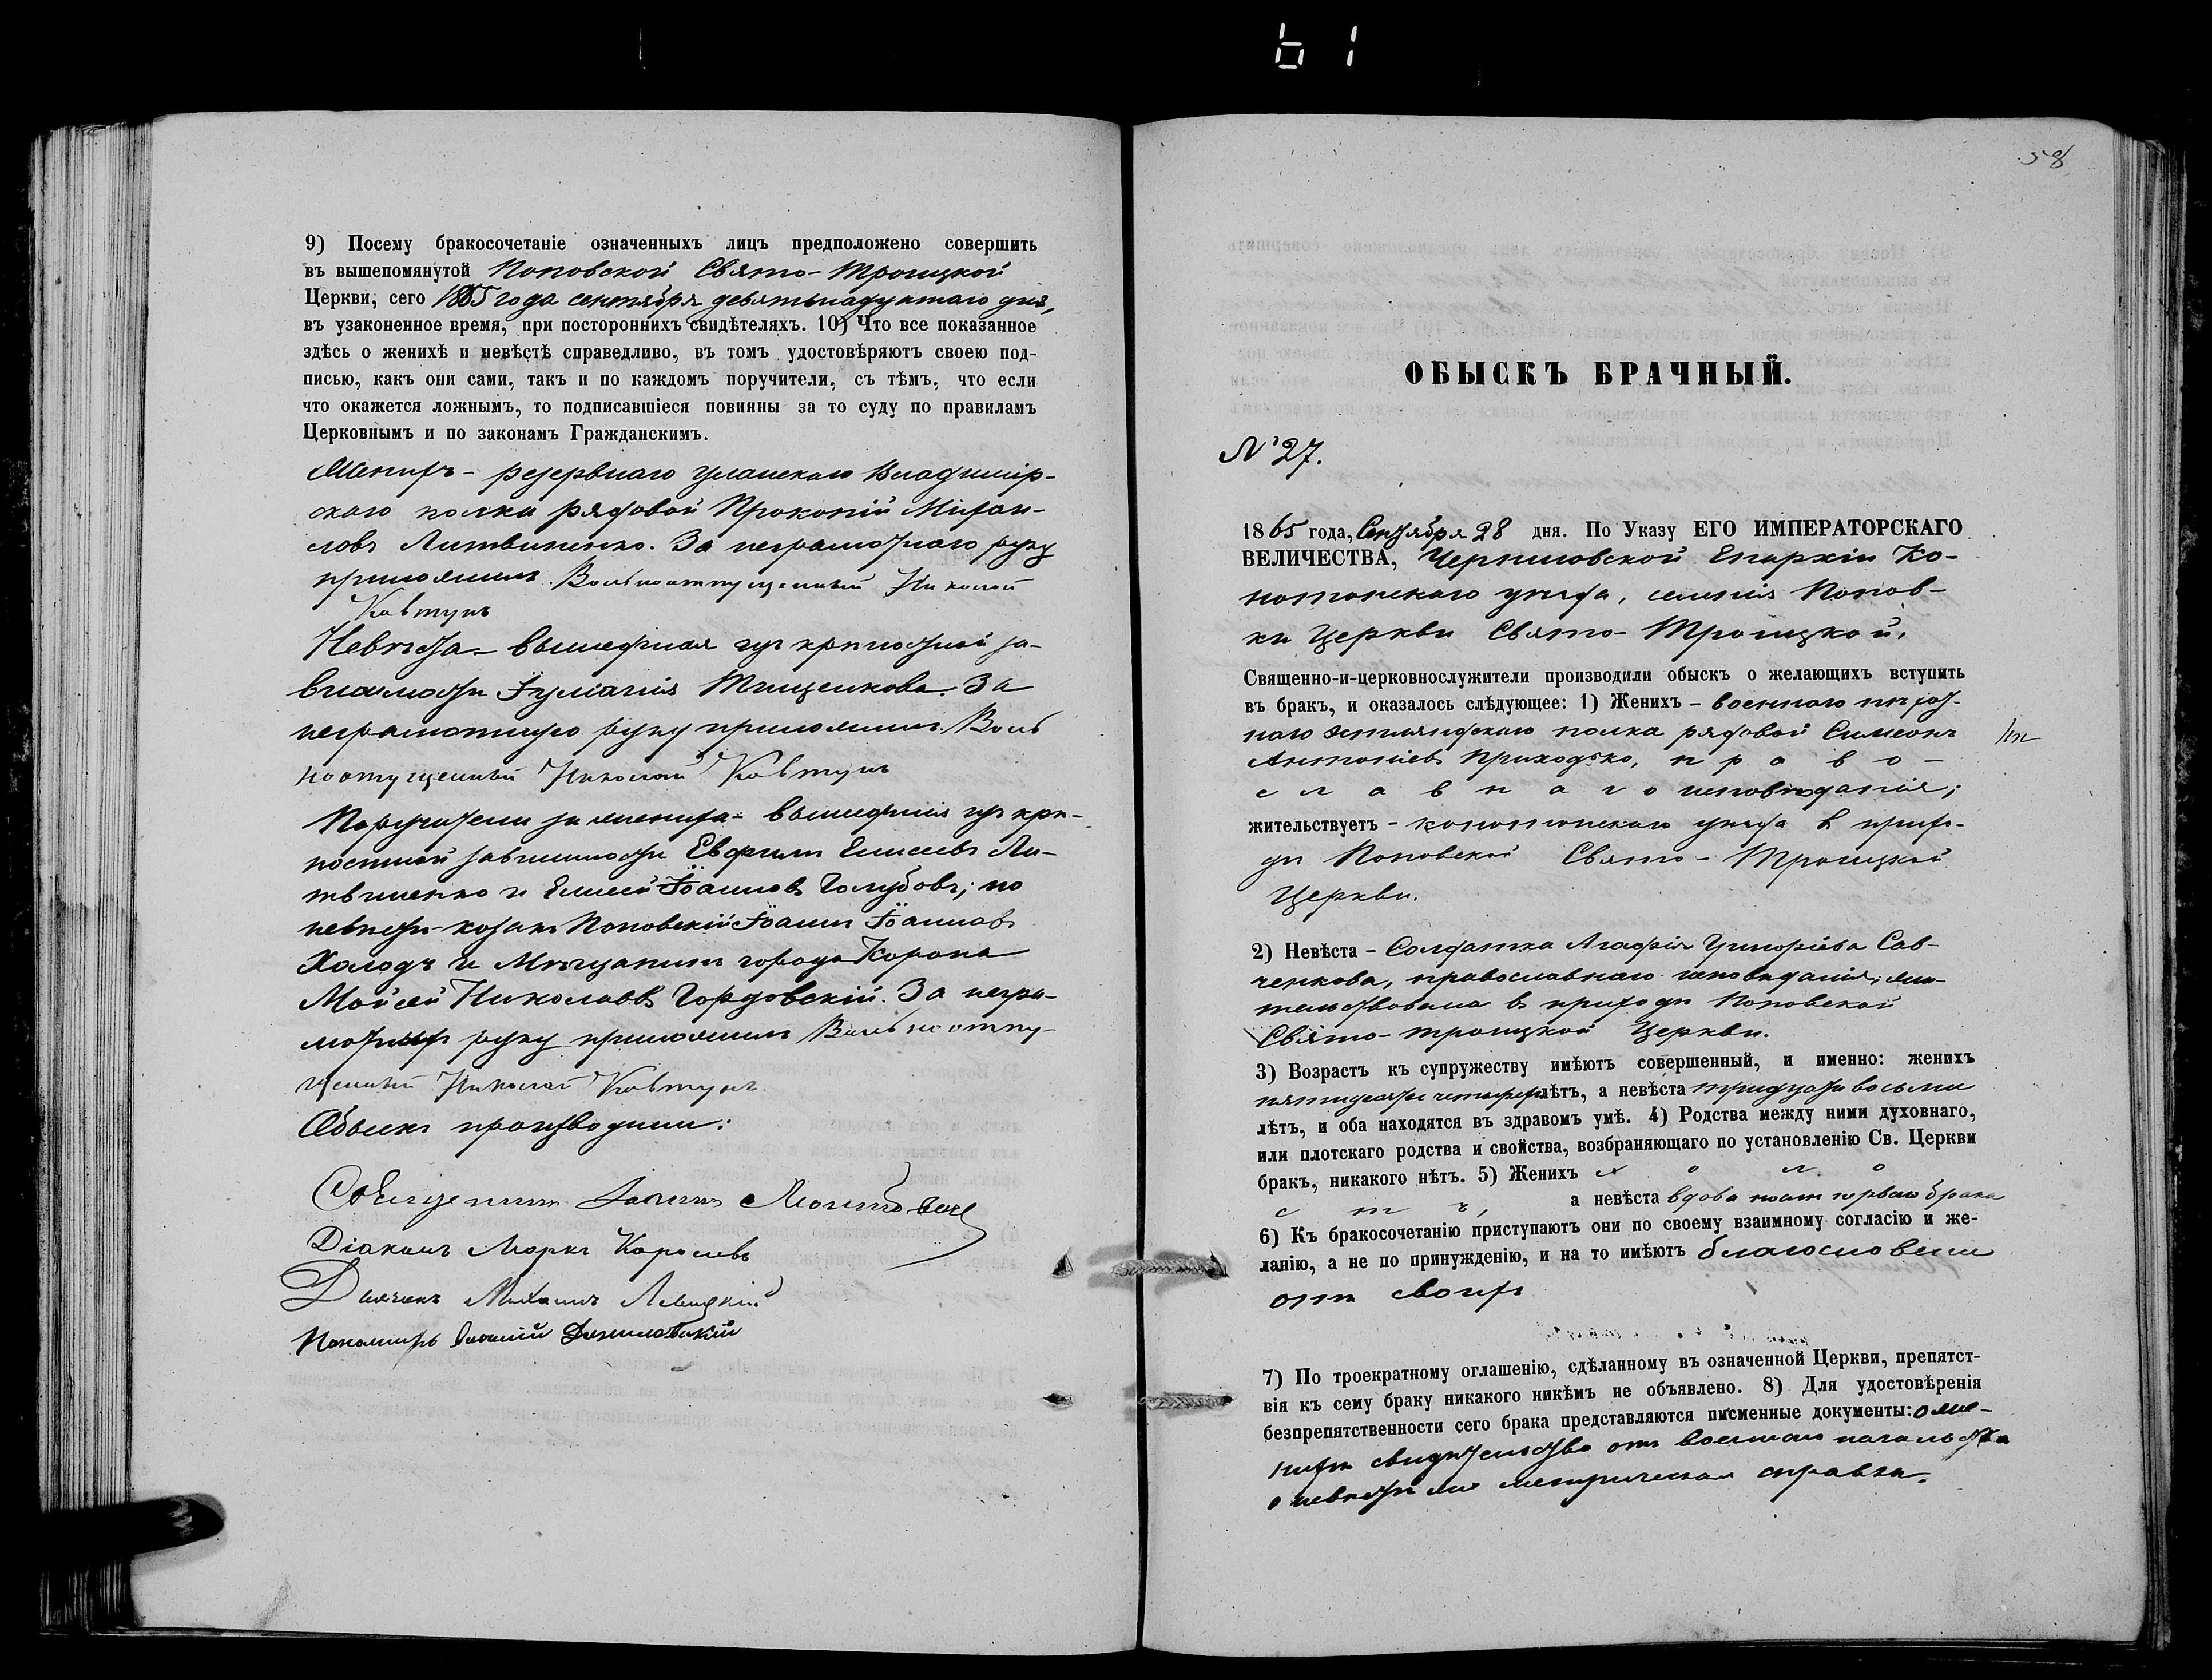 61
9) Посему бракосочетаніе означенныхъ лицъ предположено совершить
въ вышепомянутой Поповской Свято-Троицкой
Церкви, сего 1865 года сентября девятьнадцатаго дня,
въ узаконенное время, при постороннихъ свидѣтеляхъ. 10) Что все показанное
здѣсь о женихѣ и невѣстѣ справедливо, въ томъ удостовѣряютъ своею под-
писью, какъ они сами, такъ и по каждомъ поручители, съ тѣмъ, что если
что окажется ложнымъ, то подписавшіеся повинны за то суду по правиламъ
Церковнымъ и по законамъ Гражданскимъ.
Женихъ - резервнаго уланскаго Владимір-
скаго полка рядовой Прокопій Михаи-
ловъ Литвиненко. За неграмотнаго руку
приложилъ Вольноотпущенный Николай
Ковтунъ
Невѣста - вышедшая изъ крѣпостной за-
висимости Іуліанія Тищенкова. За
неграмотную руку приложилъ Воль
ноотпущенный Николай Ковтунъ
Поручители за жениха - вышедшія изъ крѣ-
постной зависимости Евфимъ Елисеевъ Ли-
твиненко и Елисей Іоанновъ Голубовъ; по
невѣстѣ - козакъ Поповскій Іоаннъ Іоанновъ
Холодъ и Мѣщанинъ города Коропа
Мойсей Николаевъ Гордовскій. За негра-
мотныхъ руку приложилъ Вольноотпу-
щенный Николай Ковтунъ
Обыскъ производили:
Священникъ Іоаннъ
Діаконъ Маркъ Королевъ
Дьячекъ Михаилъ Левицкій
Пономарь Василій Данило
58
ОБЫСКЪ БРАЧНЫЙ.
№ 27.
1865 года, Сентября 28 дня. По Указу ЕГО ИМПЕРАТОРСКАГО
ВЕЛИЧЕСТВА, Черниговской Епархіи Ко-
нотопскаго уѣзда, селенія Попов-
ки Церкви Свято-Троицкой.
Священно-и-церковнослужители производили обыскъ о желающихъ вступить
въ бракъ, и оказалось слѣдующее: 1) Женихъ - военнаго пѣхот-
наго полка рядовой Симеонъ
Антоніевъ Приходько, п р а в о -
с л а в н а г о исповѣданія;
жительствуетъ - конотопскаго уѣзда в прихо-
дѣ Поповской Свято-Троицкой
Церкви.
2) Невѣста - Солдатка Агафія Григоріева Сав-
ченкова, православнаго исповѣданія, жи-
тельствовала в приходѣ Поповской
Свято-троицкой Церкви.
3) Возрастъ къ супружеству имѣютъ совершенный, и именно: женихъ
пятидесяти четырехъ лѣтъ, а невѣста тридцати восьми
лѣтъ, и оба находятся въ здравомъ умѣ. 4) Родства между ними духовнаго,
или плотскаго родства и свойства, возбраняющаго по установленію Св. Церкви
бракъ, никакого нѣтъ. 5) Женихъ х о л о
с т ъ, а невѣста вдова послѣ перваго брака
6) Къ бракосочетанію приступаютъ они по своему взаимному согласію и же-
ланію, а не по принужденію, и на то имѣютъ благословеніе
отъ своихъ
7) По троекратному оглашенію, сдѣланному въ означенной Церкви, препятст-
вія къ сему браку никакого никѣмъ не объявлено. 8) Для удостовѣренія
безпрепятственности сего брака представляются писменные документы: о же-
нихѣ свидѣтельство отъ военнаго начальства
о невѣстѣ же метрическая справка.